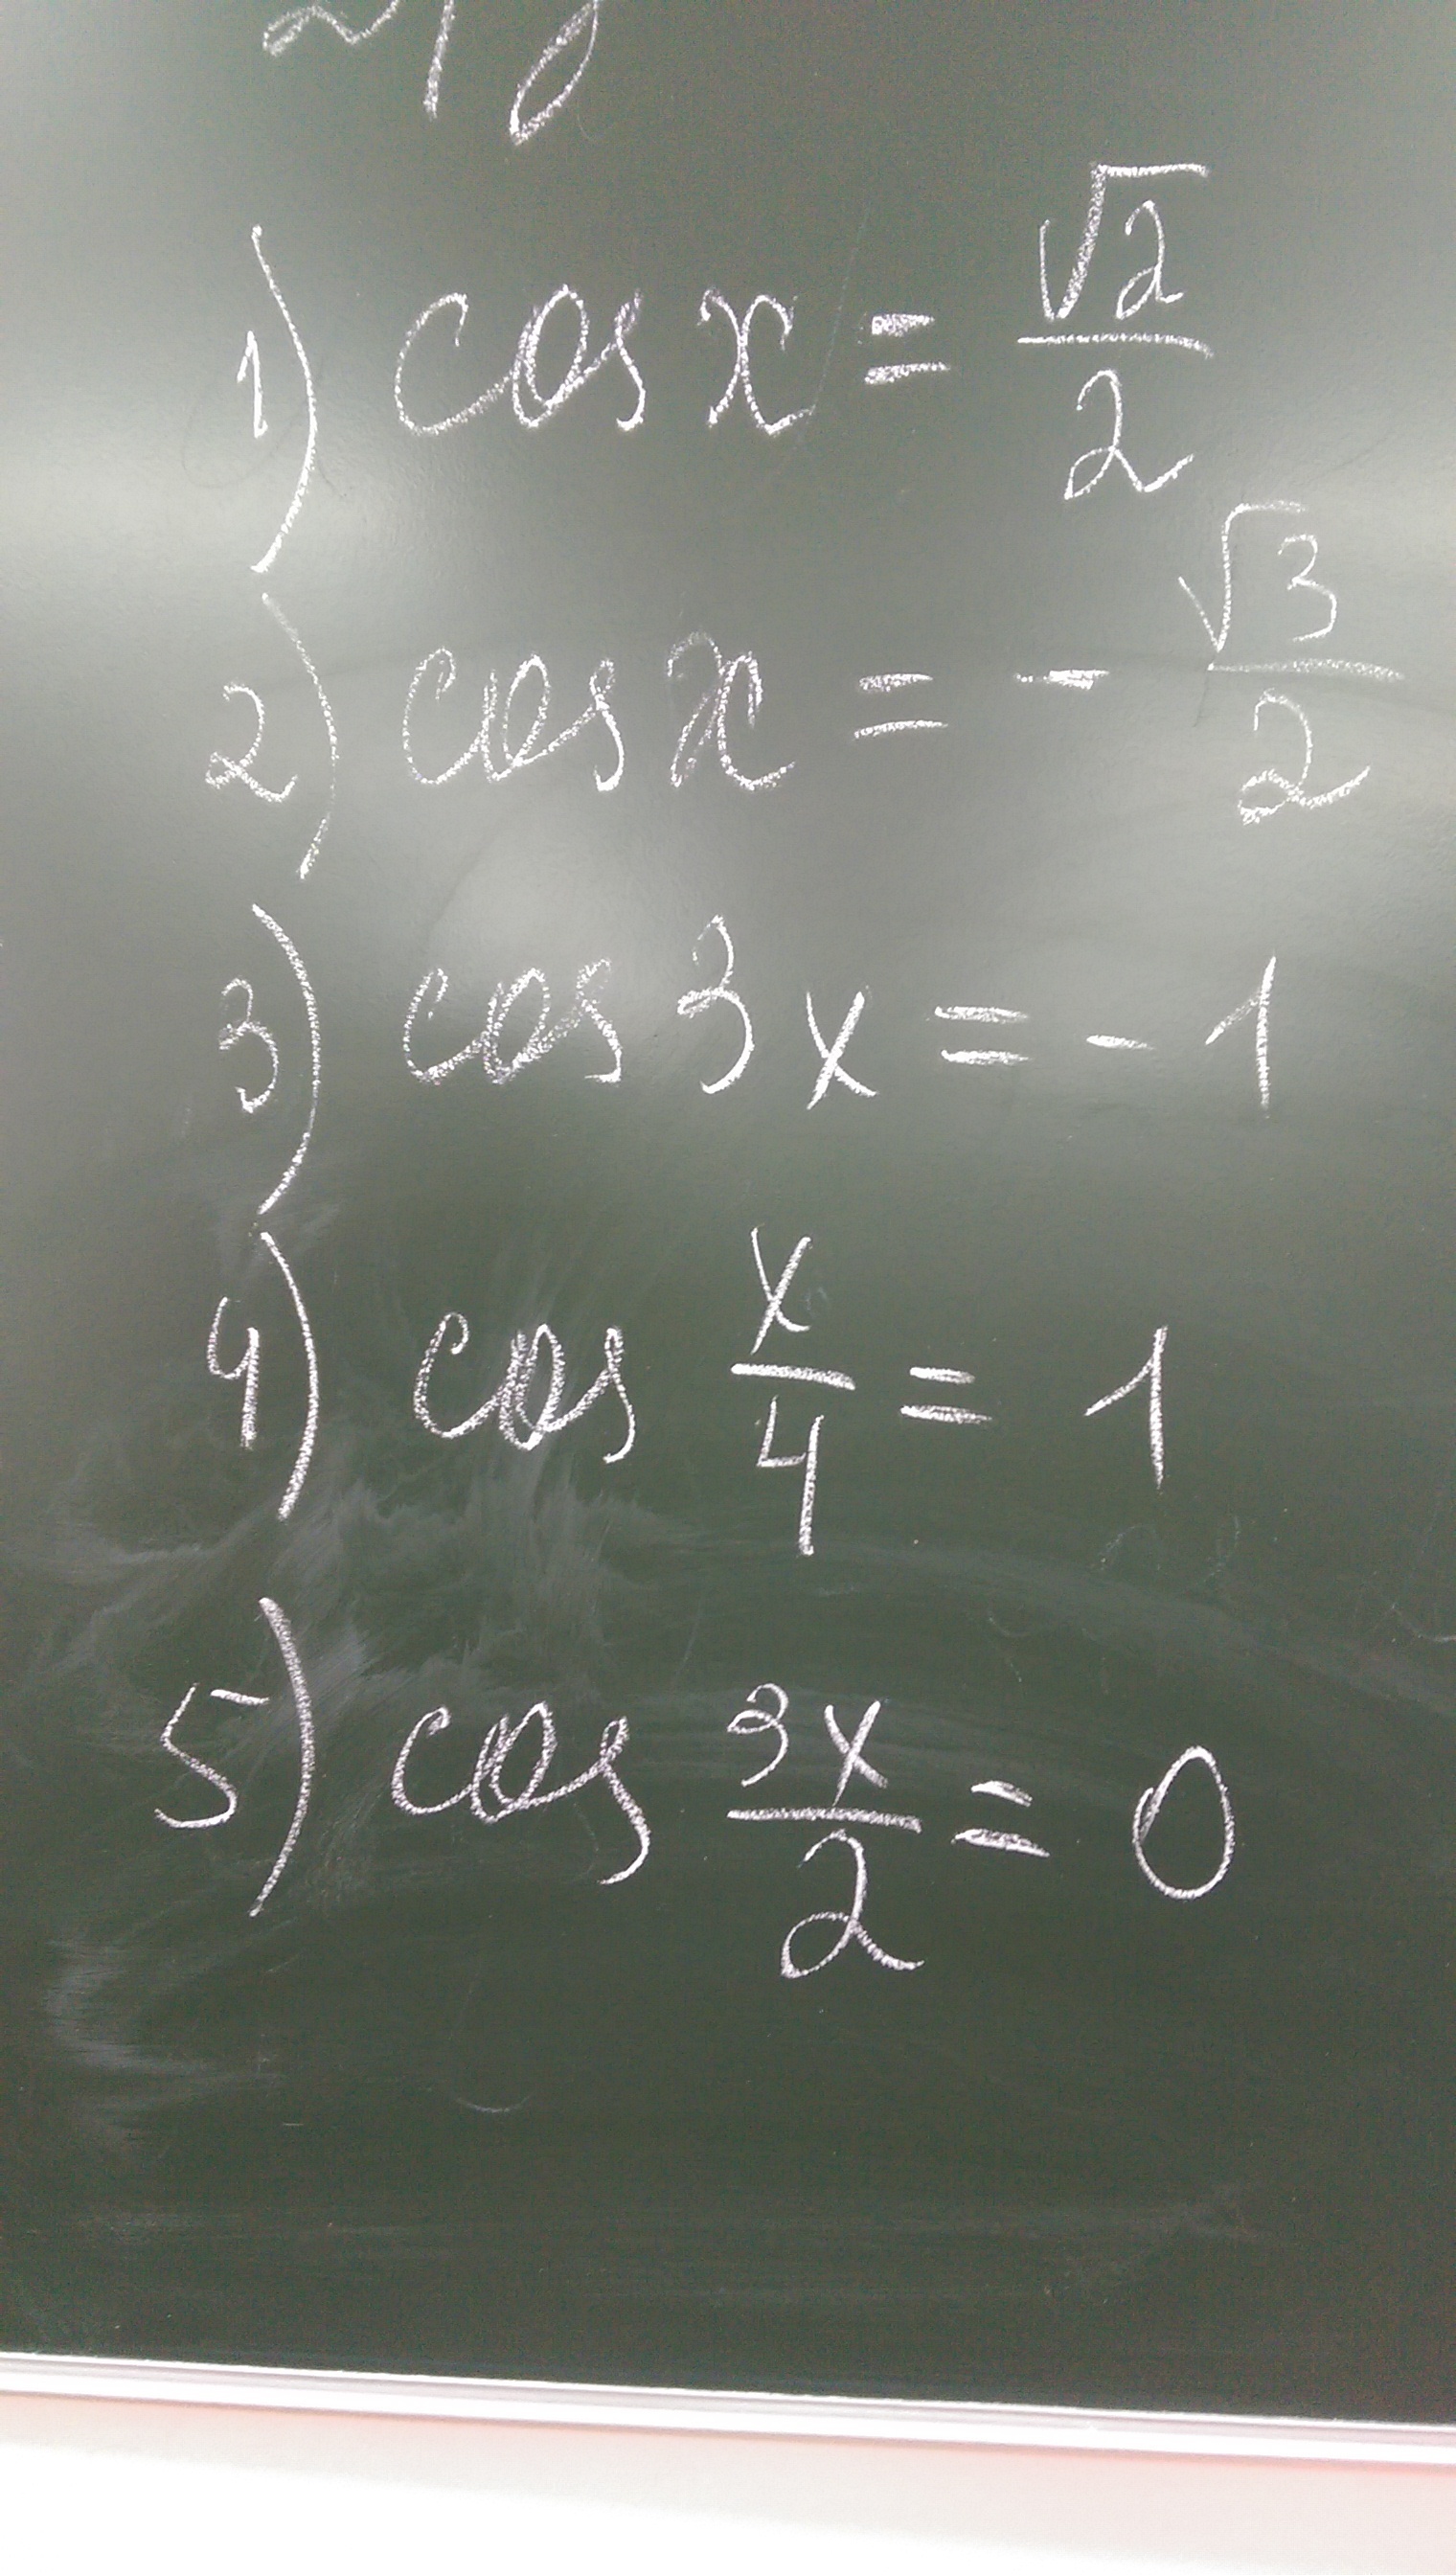 1) cos x = √2/2
2) cos x = - √3/2
3) cos 3x = -1
4) cos x/4 = 1
5) cos 3x/2 = 0